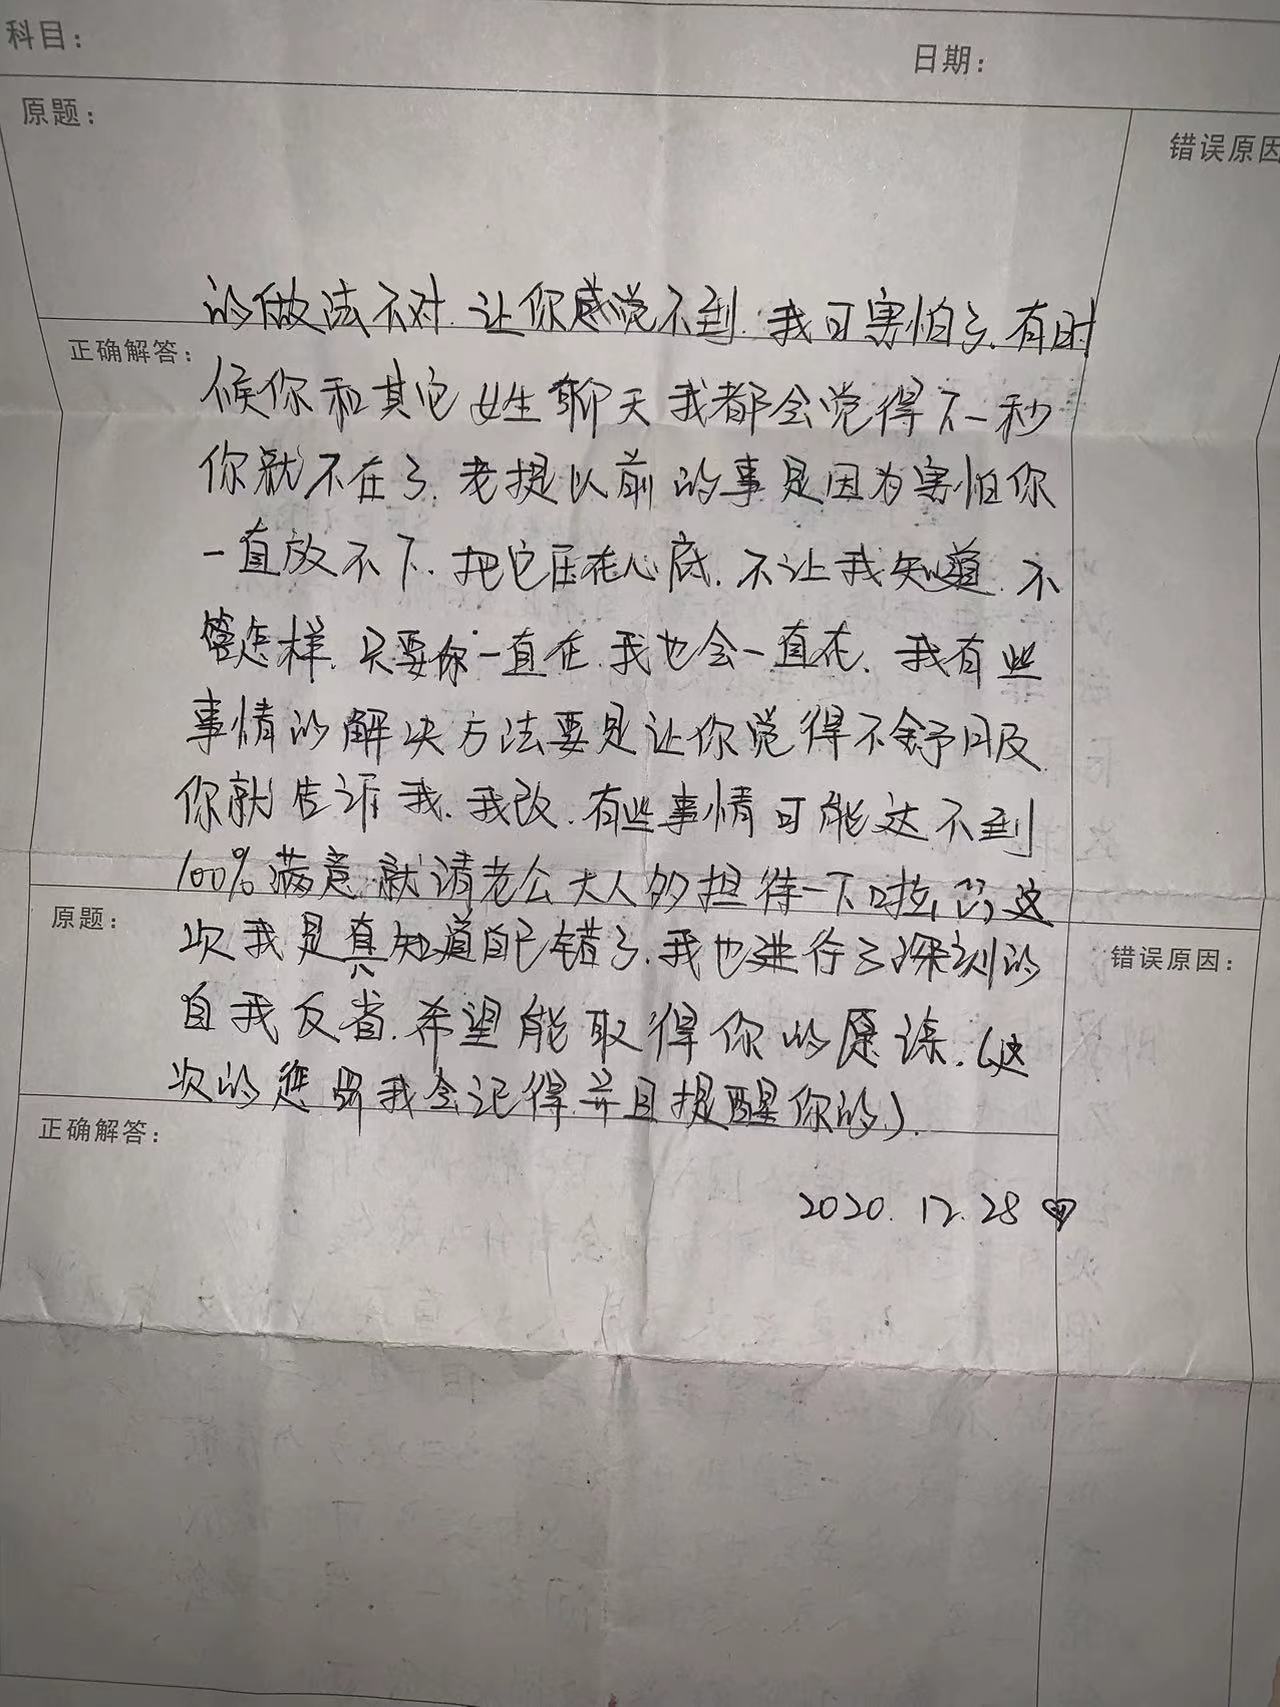 科目：
日期：
原题：
错误原因
的做法不对.让你感觉不到.我可害怕了.有时
正确解答：
候你和其它女生聊天我都会觉得下一秒
你就不在了.老提以前的事是因为害怕你
一直放不下.把它压在心底.不让我知道.不
管怎样.只要你一直在.我也会一直在.我有些
事情的解决方法要是让你觉得不舒服
你就告诉我.我改.有些事情可能达不到
100%满意就请老公大人多担待一下啦,这
原题：
次我是真知道自己错了.我也进行了深刻的
错误原因：
自我反省.希望能取得你的愿谅.(这
次的我会记得并且提醒你的).
正确解答：
2020.12.28♡